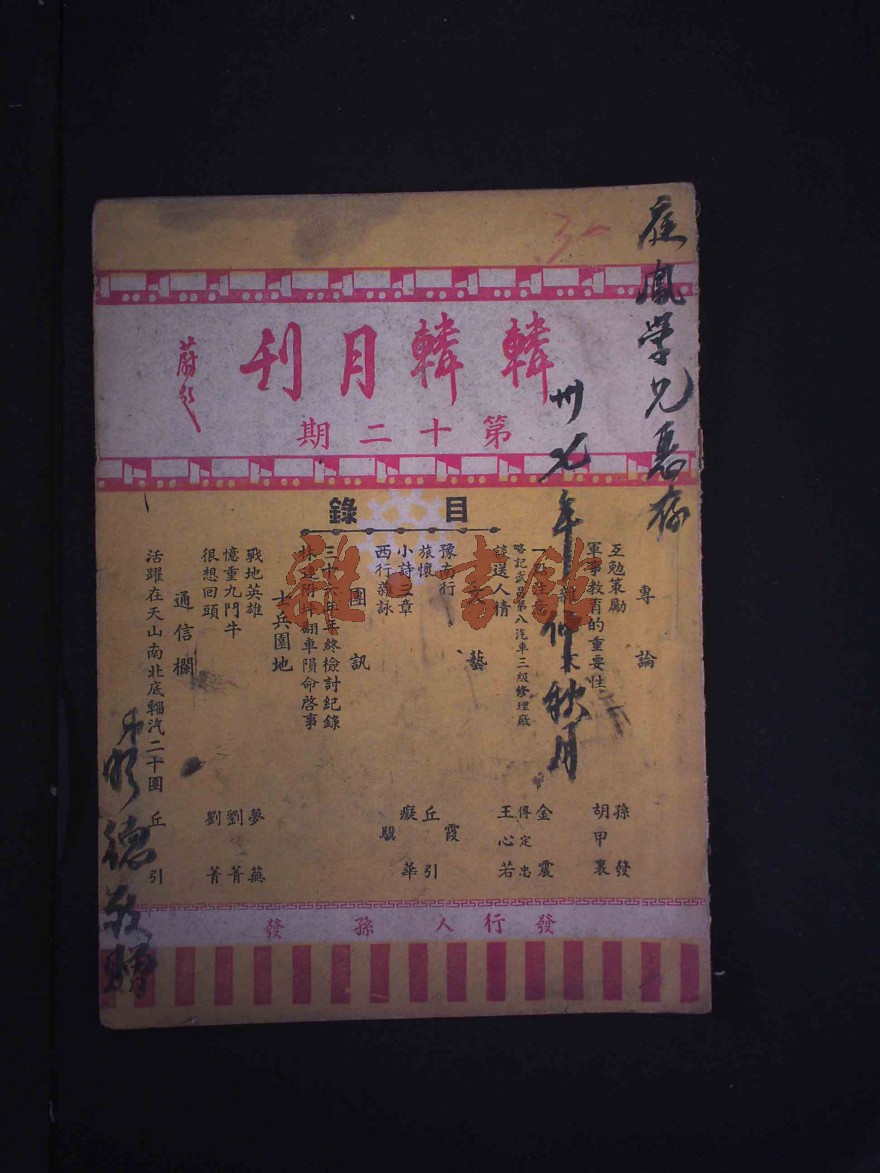 庭鳳學兄惠存
卅七年仲秋月
弟明德敬贈
轔轔月刊
蔚題
第十二期
目錄
專論
互勉策勵 孫發
軍事教育的重要性 胡甲裏
金震
略記武昌第八汽車三級修理廠 傅定忠
談送人情 王心若
文藝
豫南行 霞
旅懷 丘引
小詩三章 癡華
西行雜詠 駿
團訊
三十六年年終檢討紀錄
株建附坪翻車隕命啓事
士兵園地
戰地英雄 夢蕪
憶重九鬥牛 劉菁
很想回頭 劉菁
通信欄
活躍在天山南北底輜汽二十團 丘引
發行人 孫發
雜·書館